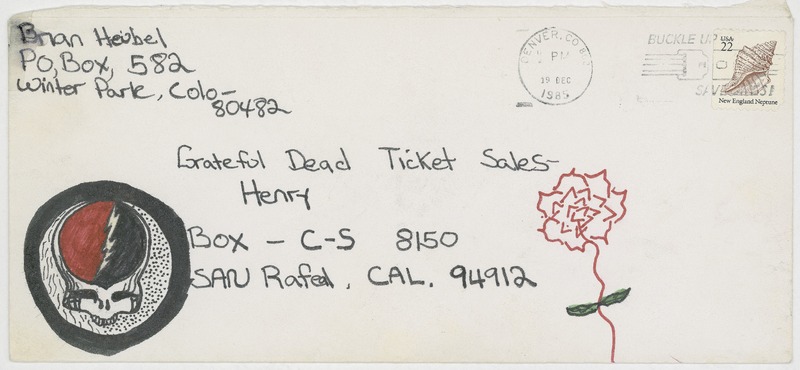 Brian Heubel
PO, Box, 582
Winter Park, Colo-
80482
DENVER, CO
PM
19 DEC
1985
BUCKLE UP
USA
22
New England Neptune
Grateful Dead Ticket Sales-
Henry
Box - C-S 8150
SAN Rafel, CAL. 94912